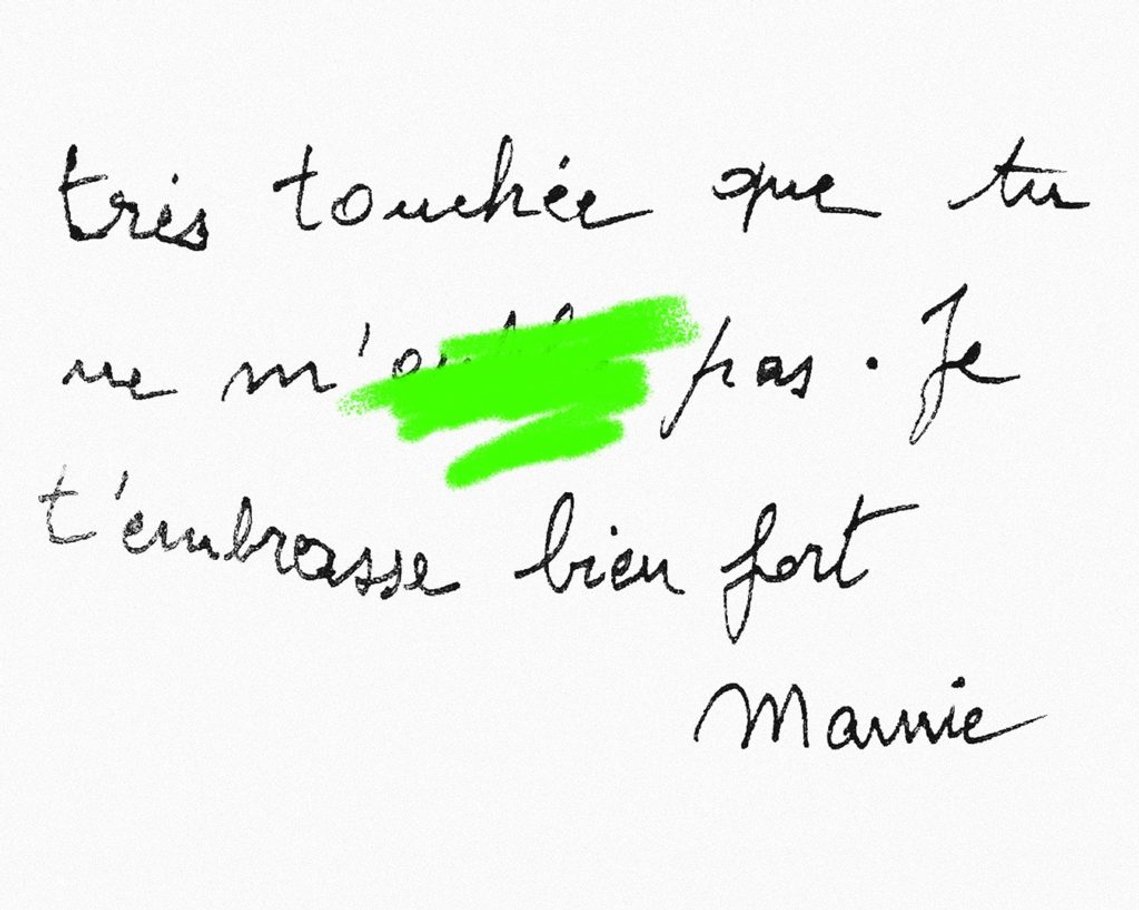 très touchée que tu
ne pas. Je
t'embrasse bien fort
Mamie